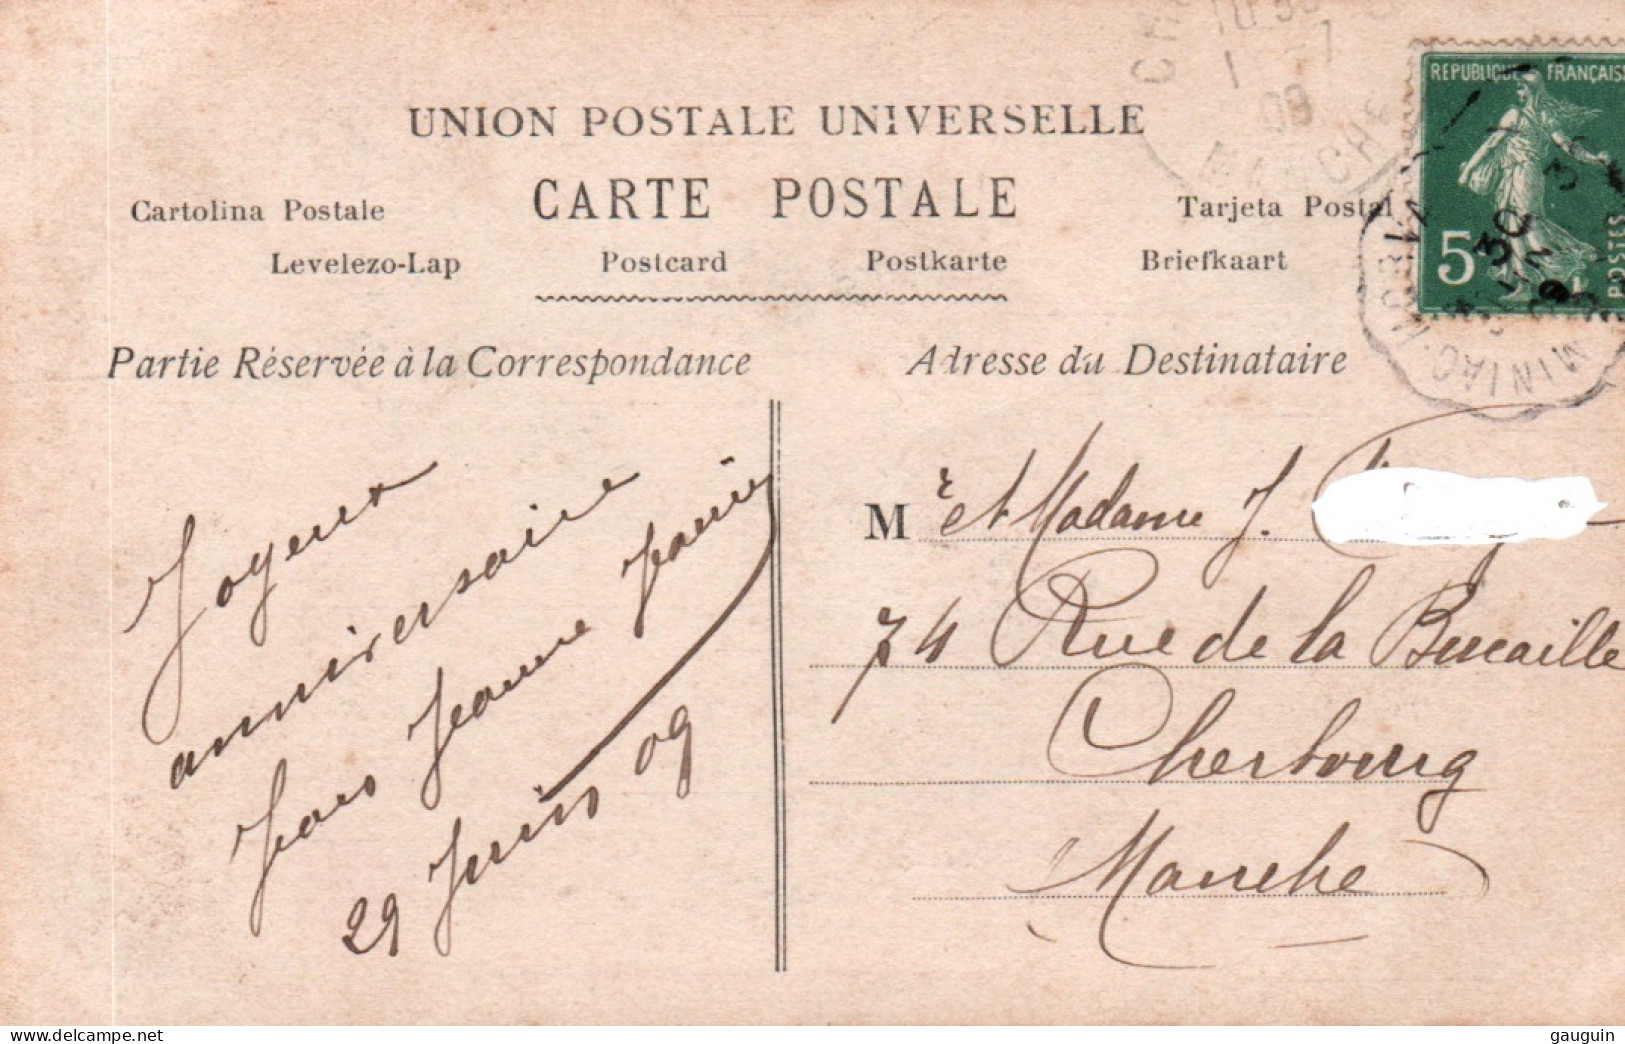 UNION POSTALE UNIVERSELLE
CARTE POSTALE
Cartolina Postale
Tarjeta Postal
Levelezo-Lap
Postcard
Postkarte
Briefkaart
Partie Réservée à la Correspondance
Adresse du Destinataire
REPUBLIQUE FRANÇAISE
5
POSTES
1 -7
09
MANCHE
MINIAC-MORVAN
30
Joyeux
anniversaire
Jeanne
29 Juin 09
M r et Madame J.
74 Rue de la Bucaille
Cherbourg
Manche
delcampe.net
gauguin